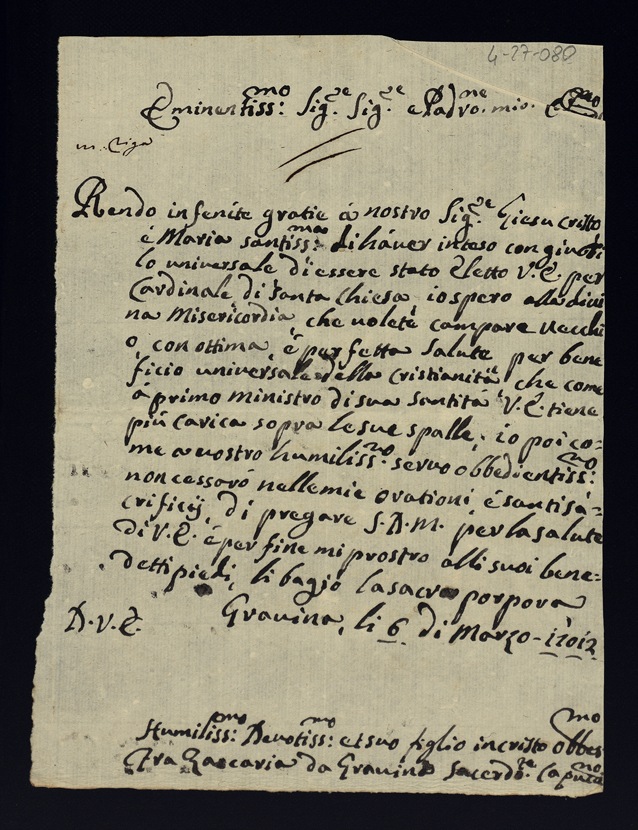 4-27-080
Eminentiss:mo Sig.re Sig.re e Padro.ne mio.
Rendo infenite gratie á nostro Sig.re Giesu Cristo
é Maria santiss:ma di háver inteso con giubi
lo universale d'essere stato Eletto V.E. per
Cardinale di Santa Chiesa, io spero alla divi
na Misericordia, che volete campare vecchi
o, con ottima, é perfetta salute per bene
ficio universale della Cristianitá, che come
á primo ministro di sua Santitá V.E. tiene
piú carica sopra le sue spalle; io poi co=
me a vostro humiliss:mo servo obbedientiss:mo
non cessaró nelle mie orationi, é santi sa=
crificij, di pregare S.D.M. per la salute
di V.E. é per fine mi prostro alli suoi bene=
detti piedi, li bagio la sacra porpora
Gravina, li 6 di Marzo
D.V.E.
Humiliss:mo Devotiss:mo et suo figlio in cristo obbes mo
Fra Zaccaria da Gravina Sacerdo.te Capucci no